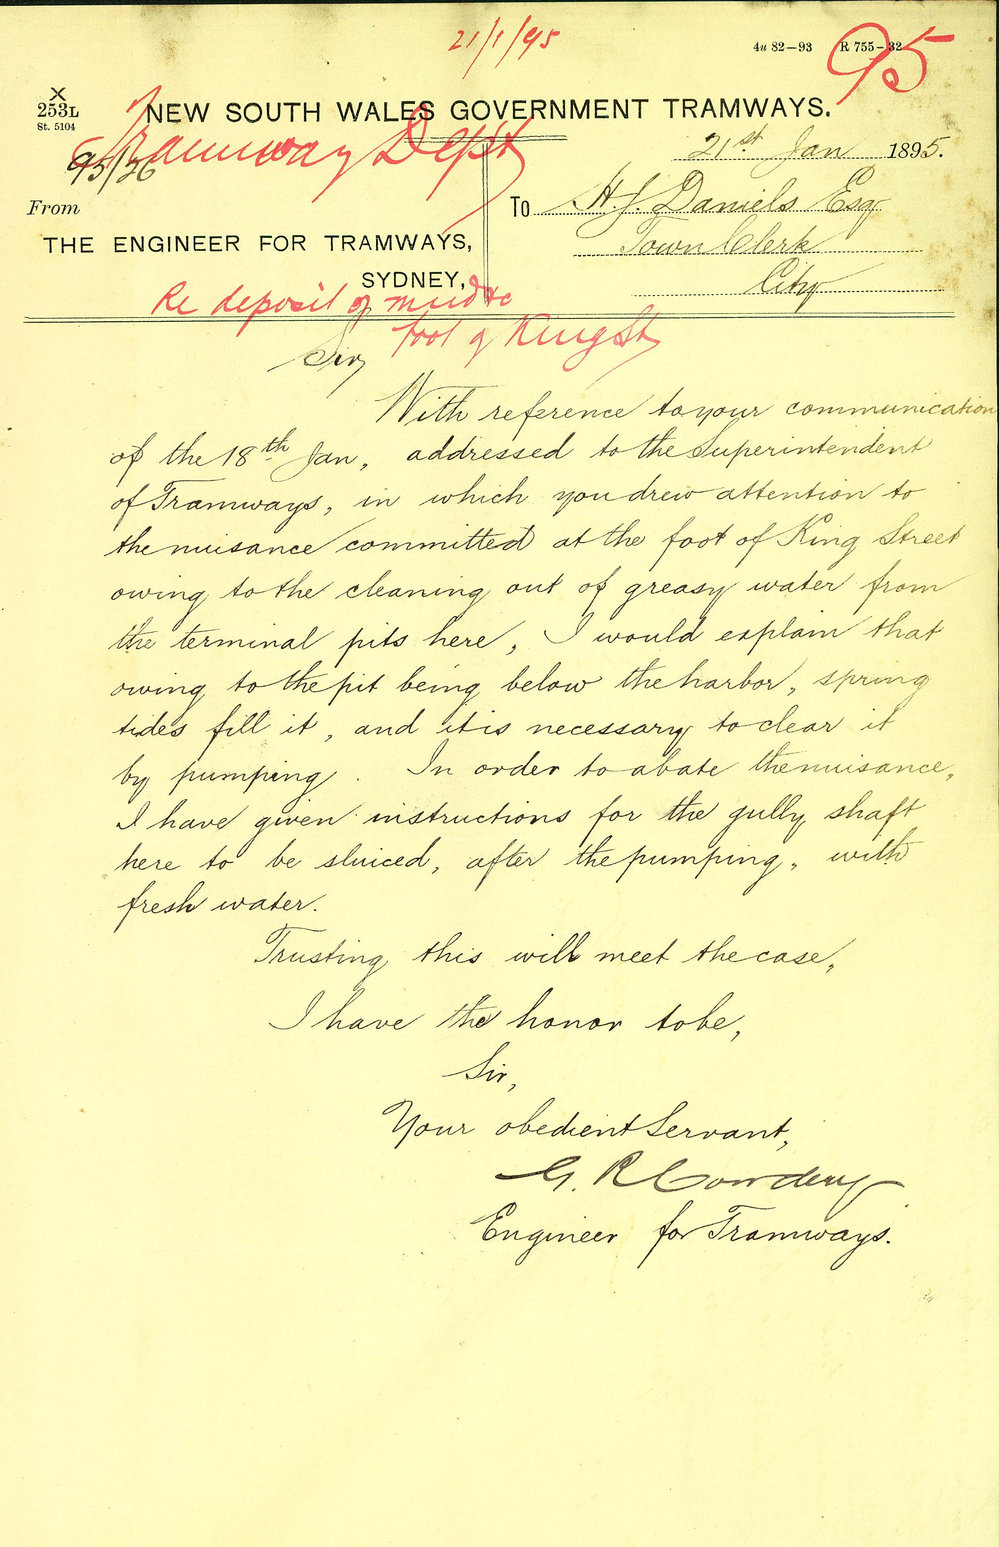 21/1/95
4u 82-93 R 755-32
95
X
253L
St. 5104
NEW SOUTH WALES GOVERNMENT TRAMWAYS.
Tramway Dept
95/26
21st Jan 1895.
From
To H. J. Daniels Esq
THE ENGINEER FOR TRAMWAYS,
Town Clerk
SYDNEY,
City
Re deposit of mud &c
foot of King St
Sir,
With reference to your communication
of the 18th Jan, addressed to the Superintendent
of Tramways, in which you drew attention to
the nuisance committed at the foot of King Street
owing to the cleaning out of greasy water from
the terminal pits here, I would explain that
owing to the pit being below the harbor, spring
tides fill it, and it is necessary to clear it
by pumping. In order to abate the nuisance,
I have given instructions for the gully shaft
here to be sluiced, after the pumping, with
fresh water.
Trusting this will meet the case,
I have the honor to be,
Sir,
Your obedient Servant,
G. R. Cowdery
Engineer for Tramways.